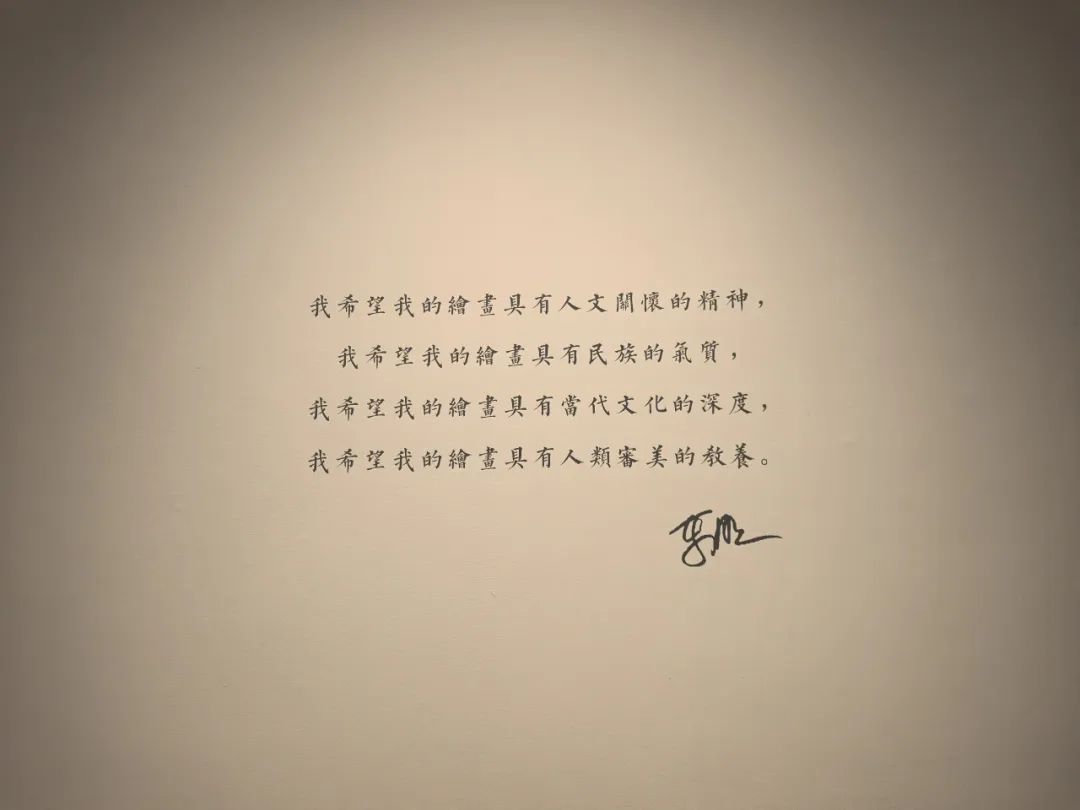 我希望我的繪畫具有人文關懷的精神，
我希望我的繪畫具有民族的氣質，
我希望我的繪畫具有當代文化的深度，
我希望我的繪畫具有人類審美的教養。